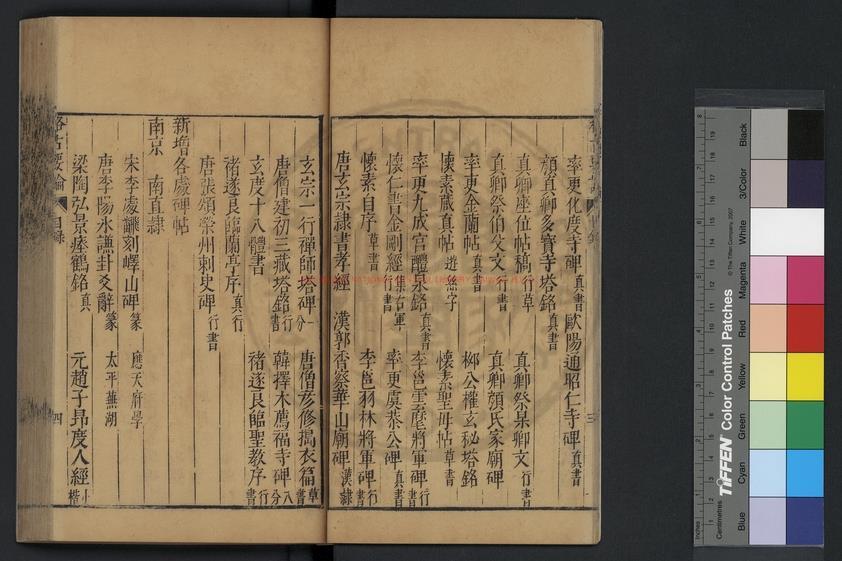 率更化度寺碑真書 歐陽通昭仁寺碑真書
顔真卿多寶寺塔銘真書
真卿座位帖稿行草 真卿祭杲卿文行書
真卿祭伯父文行書 真卿顔氏家廟碑
率更金蘭帖真書 柳公權玄秘塔銘
懐素藏真帖遊絲字 懐素聖母帖草書
率更九成宮醴泉銘真書 李邕雲麾將軍碑行書
懐仁書金剛經集右軍行書 率更虞恭公碑真書
懐素自序草書 李邕羽林將軍碑行書
唐玄宗隷書孝經 漢郭香察華山廟碑漢隷
三
玄宗一行禪師塔碑八分 唐僧彦修搗衣篇草書
唐僧建初三藏塔銘行書 韓擇木薦福寺碑八分
玄度十八體書 褚遂良臨聖教序行書
褚遂良臨蘭亭序真行
唐張顛榮州刺史碑行書
新增各處碑帖
南京 南直隷
宋李處巽刻嶧山碑篆 應天府學
唐李陽氷謙卦爻辭篆 太平蕪湖
梁陶弘景瘞鶴銘真 元趙子昻度人經小楷
格古要論 目録 四
Centimetres
Inches
TIFFEN Color Control Patches
© The Tiffen Company, 2007
Blue
Cyan
Green
Yellow
Red
Magenta
White
3/Color
Black